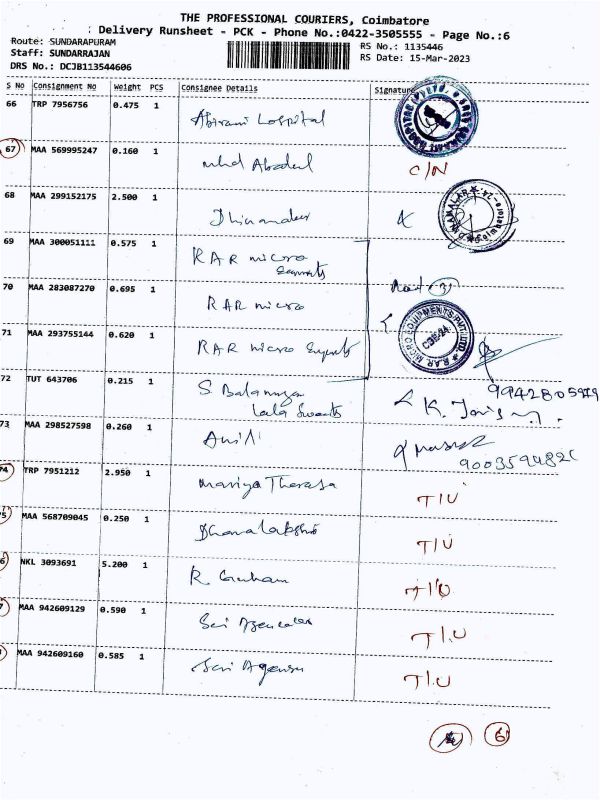 THE PROFESSIONAL COURIERS, Coimbatore
Delivery Runsheet - PCK - Phone No.:0422-3505555 - Page No.:6
Route: SUNDARAPURAM RS No.: 1135446
Staff: SUNDARRAJAN RS Date: 15-Mar-2023
DRS No.: DCJB113544606
S No Consignment No Weight PCS Consignee Details Signature
66 TRP 7956756 0.475 1 Abirami Hospital
67 MAA 569995247 0.160 1 Mhd Abadul C/N
68 MAA 299152175 2.500 1
69 MAA 300051111 0.575 1 RAR micro
70 MAA 283087270 0.695 1 RAR micro
71 MAA 293755144 0.620 1 RAR micro
RAR MICRO EQUIPMENTS (PVT) LTD
CBE-24
72 TUT 643706 0.215 1 S. Balamuruga
Lala Sweets
73 MAA 298527598 0.260 1 Anil
74 TRP 7951212 2.950 1 Mariya Therasa T/U
75 MAA 568709045 0.250 1 Dhanalakshmi T/U
NKL 3093691 5.200 1 R. Gowham T/U
MAA 942609129 0.590 1 Sri Agencies T.U
MAA 942609160 0.585 1 Sri Agency T.U
6